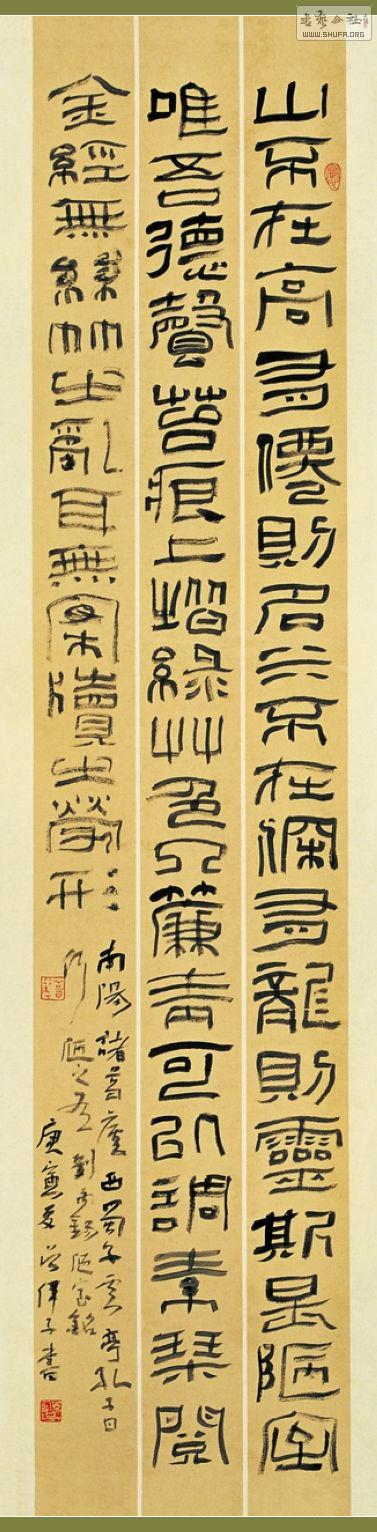 山不在高有僊則名水不在深有龍則靈斯是陋室
唯吾德馨苔痕上堦綠艸色入簾青可以調素琴閱
金經無絲竹之亂耳無案牘之勞形
南陽諸葛廬西蜀子雲亭孔子曰
何陋之有劉禹錫陋室銘
庚寅夏
書
書藝公社
WWW.SHUFA.ORG